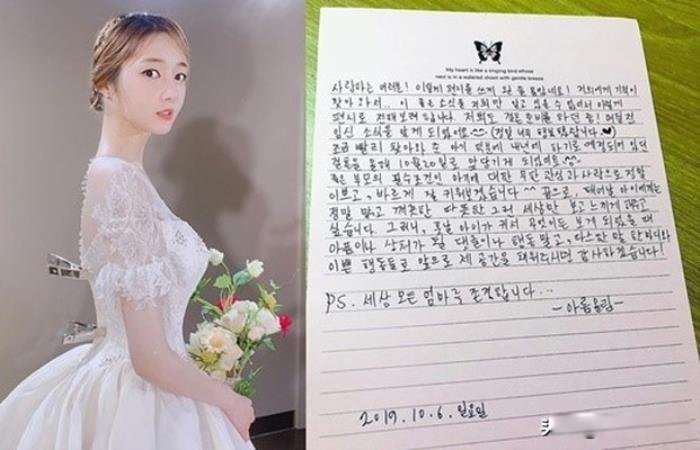 My heart is like a singing bird whose
nest is in a watered shoot with gentle breeze
사랑하는 여러분! 이렇게 편지를 쓰게 될 줄 몰랐네요! 저희에게 기적이
찾아와서.. 이 좋은 소식을 저희만 알고 있을 수 없어서 이렇게
편지로 전해보려 합니다. 저희도 결혼 준비를 하던 중! 며칠전
임신 소식을 알게 되었어요^^ (정말 너무 행복했답니다.♥)
조금 빨리 찾아와 준 아기 덕분에 내년에 하기로 예정되어 있던
결혼을 올해 10월20일로 앞당기게 되었어요^^
좋은 부모의 필수조건인 아기에 대한 무한 관심과 사랑으로 정말
이쁘고, 바르게 잘 키워보겠습니다^^ 끝으로, 태어날 아이에게는
정말 맑고 깨끗한 따뜻한 그런 세상만 보고 느끼게 해주고
싶습니다. 그러니, 훗날 아이가 커서 무엇이든 보게 되었을 때
아픔이나 상처가 될 대출이나 행동 말고, 다스한 말 한마디와
이쁜 행동들로 앞으로 제 공간을 채워주시면 감사하겠습니다!
PS. 세상 모든 엄마들 존경합니다...
-아름올림-
2019.10.6. 일요일